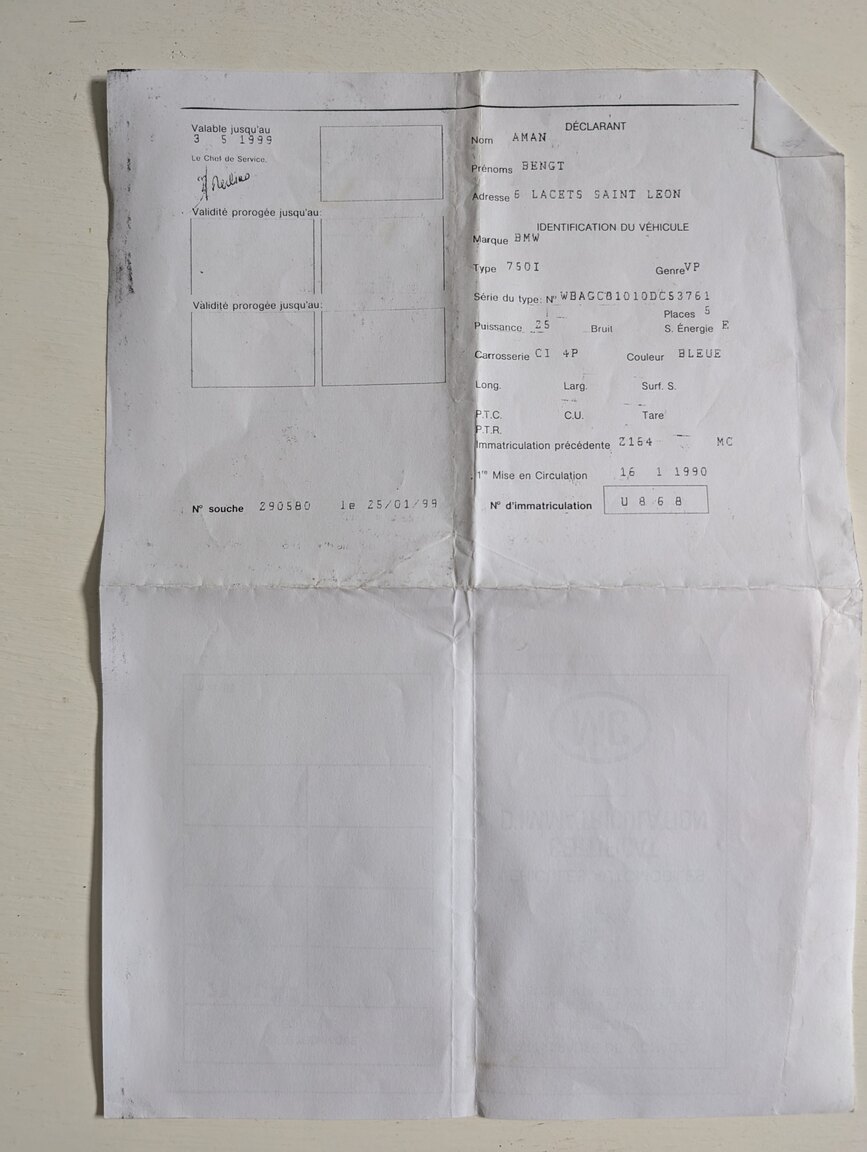 Valable jusqu'au
3 5 1999
Le Chef de Service,
Validité prorogée jusqu'au:
Validité prorogée jusqu'au:
N° souche 290580 le 25/01/99
DÉCLARANT
Nom AMAN
Prénoms BENGT
Adresse 6 LACETS SAINT LEON
IDENTIFICATION DU VÉHICULE
Marque BMW
Type 750I Genre VP
Série du type: N° WBAGC81010DC53761
Places 5
Puissance 25 Bruit S. Énergie E
Carrosserie CI 4P Couleur BLEUE
Long. Larg. Surf. S.
P.T.C. C.U. Tare
P.T.R.
Immatriculation précédente Z164 MC
1re Mise en Circulation 16 1 1990
N° d'immatriculation U 868
MC